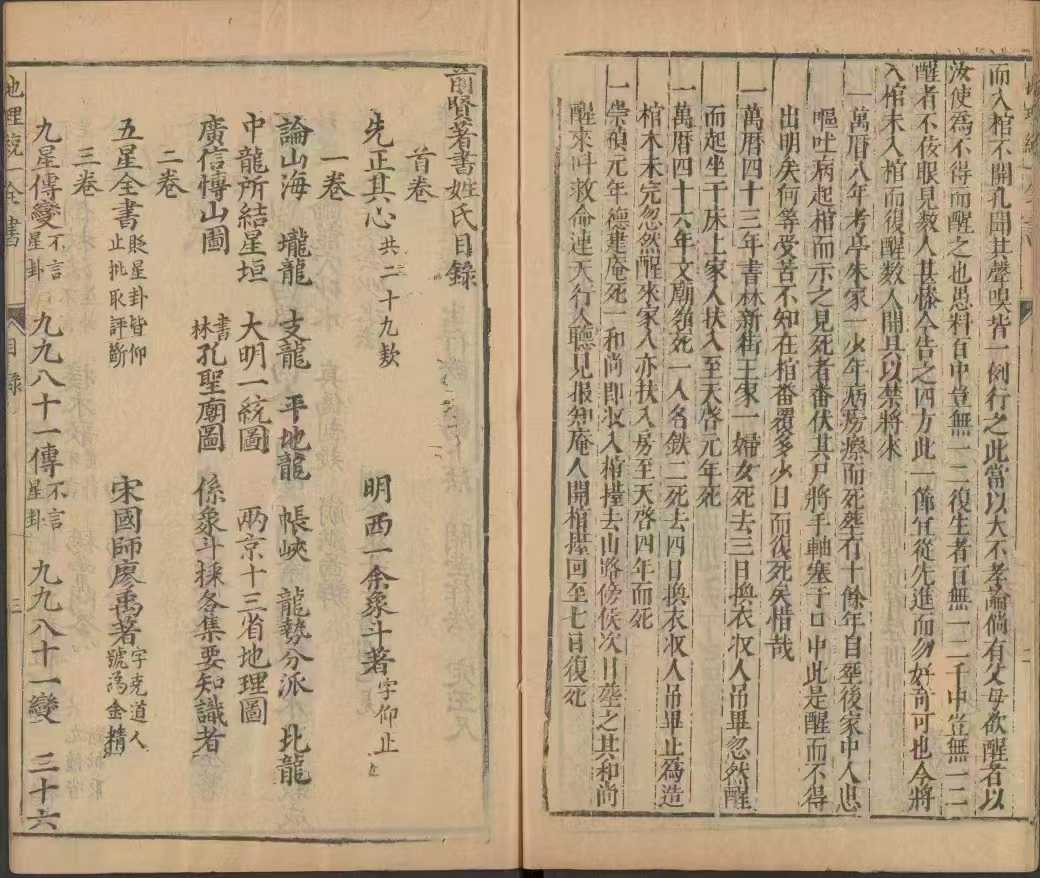 而入棺不開孔聞其聲嗅皆一例行之此當以大不孝論倘有父母欲醒者以
汝使為不得而醒之也愚料百中豈無一二復生者百無一二千中豈無一二
醒者不依眼見數人甚慘今告之四方此一節宜從先進而勿好奇可也今將
入棺未入棺而復醒數人開具以禁將來
一萬曆八年考亭朱家一少年病癆瘵而死塟有十餘年自塟後家中人患
嘔吐病起棺而示之見死者番伏其尸將手軸塞于口中此是醒而不得
出明矣何等受苦不知在棺番覆多少日而復死矣惜哉
一萬曆四十三年書林新街王家一婦女死去三日換衣収人吊畢忽然醒
而起坐于床上家人扶入至天啓元年死
一萬曆四十六年文廟須死一人名鉄二死去四日換衣収人吊畢止為造
棺木未完忽然醒來家人亦扶入房至天啓四年而死
一崇禎元年德建庵死一和尚即収入棺擡去山路傍俟次日塟之其和尚
醒來呌救命連天行人聽見报知庵人開棺擡回至七日復死
前賢著書姓氏目錄
首卷
先正其心 共二十九欵 明 西一余象斗著 字仰止
一卷
論山海 壠龍 支龍 平地龍 帳峽 龍勢分派 北龍
中龍所結星垣 大明一統圖 兩京十三省地理圖
廣信愽山圖 書林孔聖廟圖 係象斗採各集要知識者
二卷
五星全書 貶星卦皆仰止批取評斷 宋國師廖禹著 字克道人號為金精
三卷
九星傳變 不言星卦 九九八十一傳 不言星卦 九九八十一變 三十六
地理統一全書 目錄 二